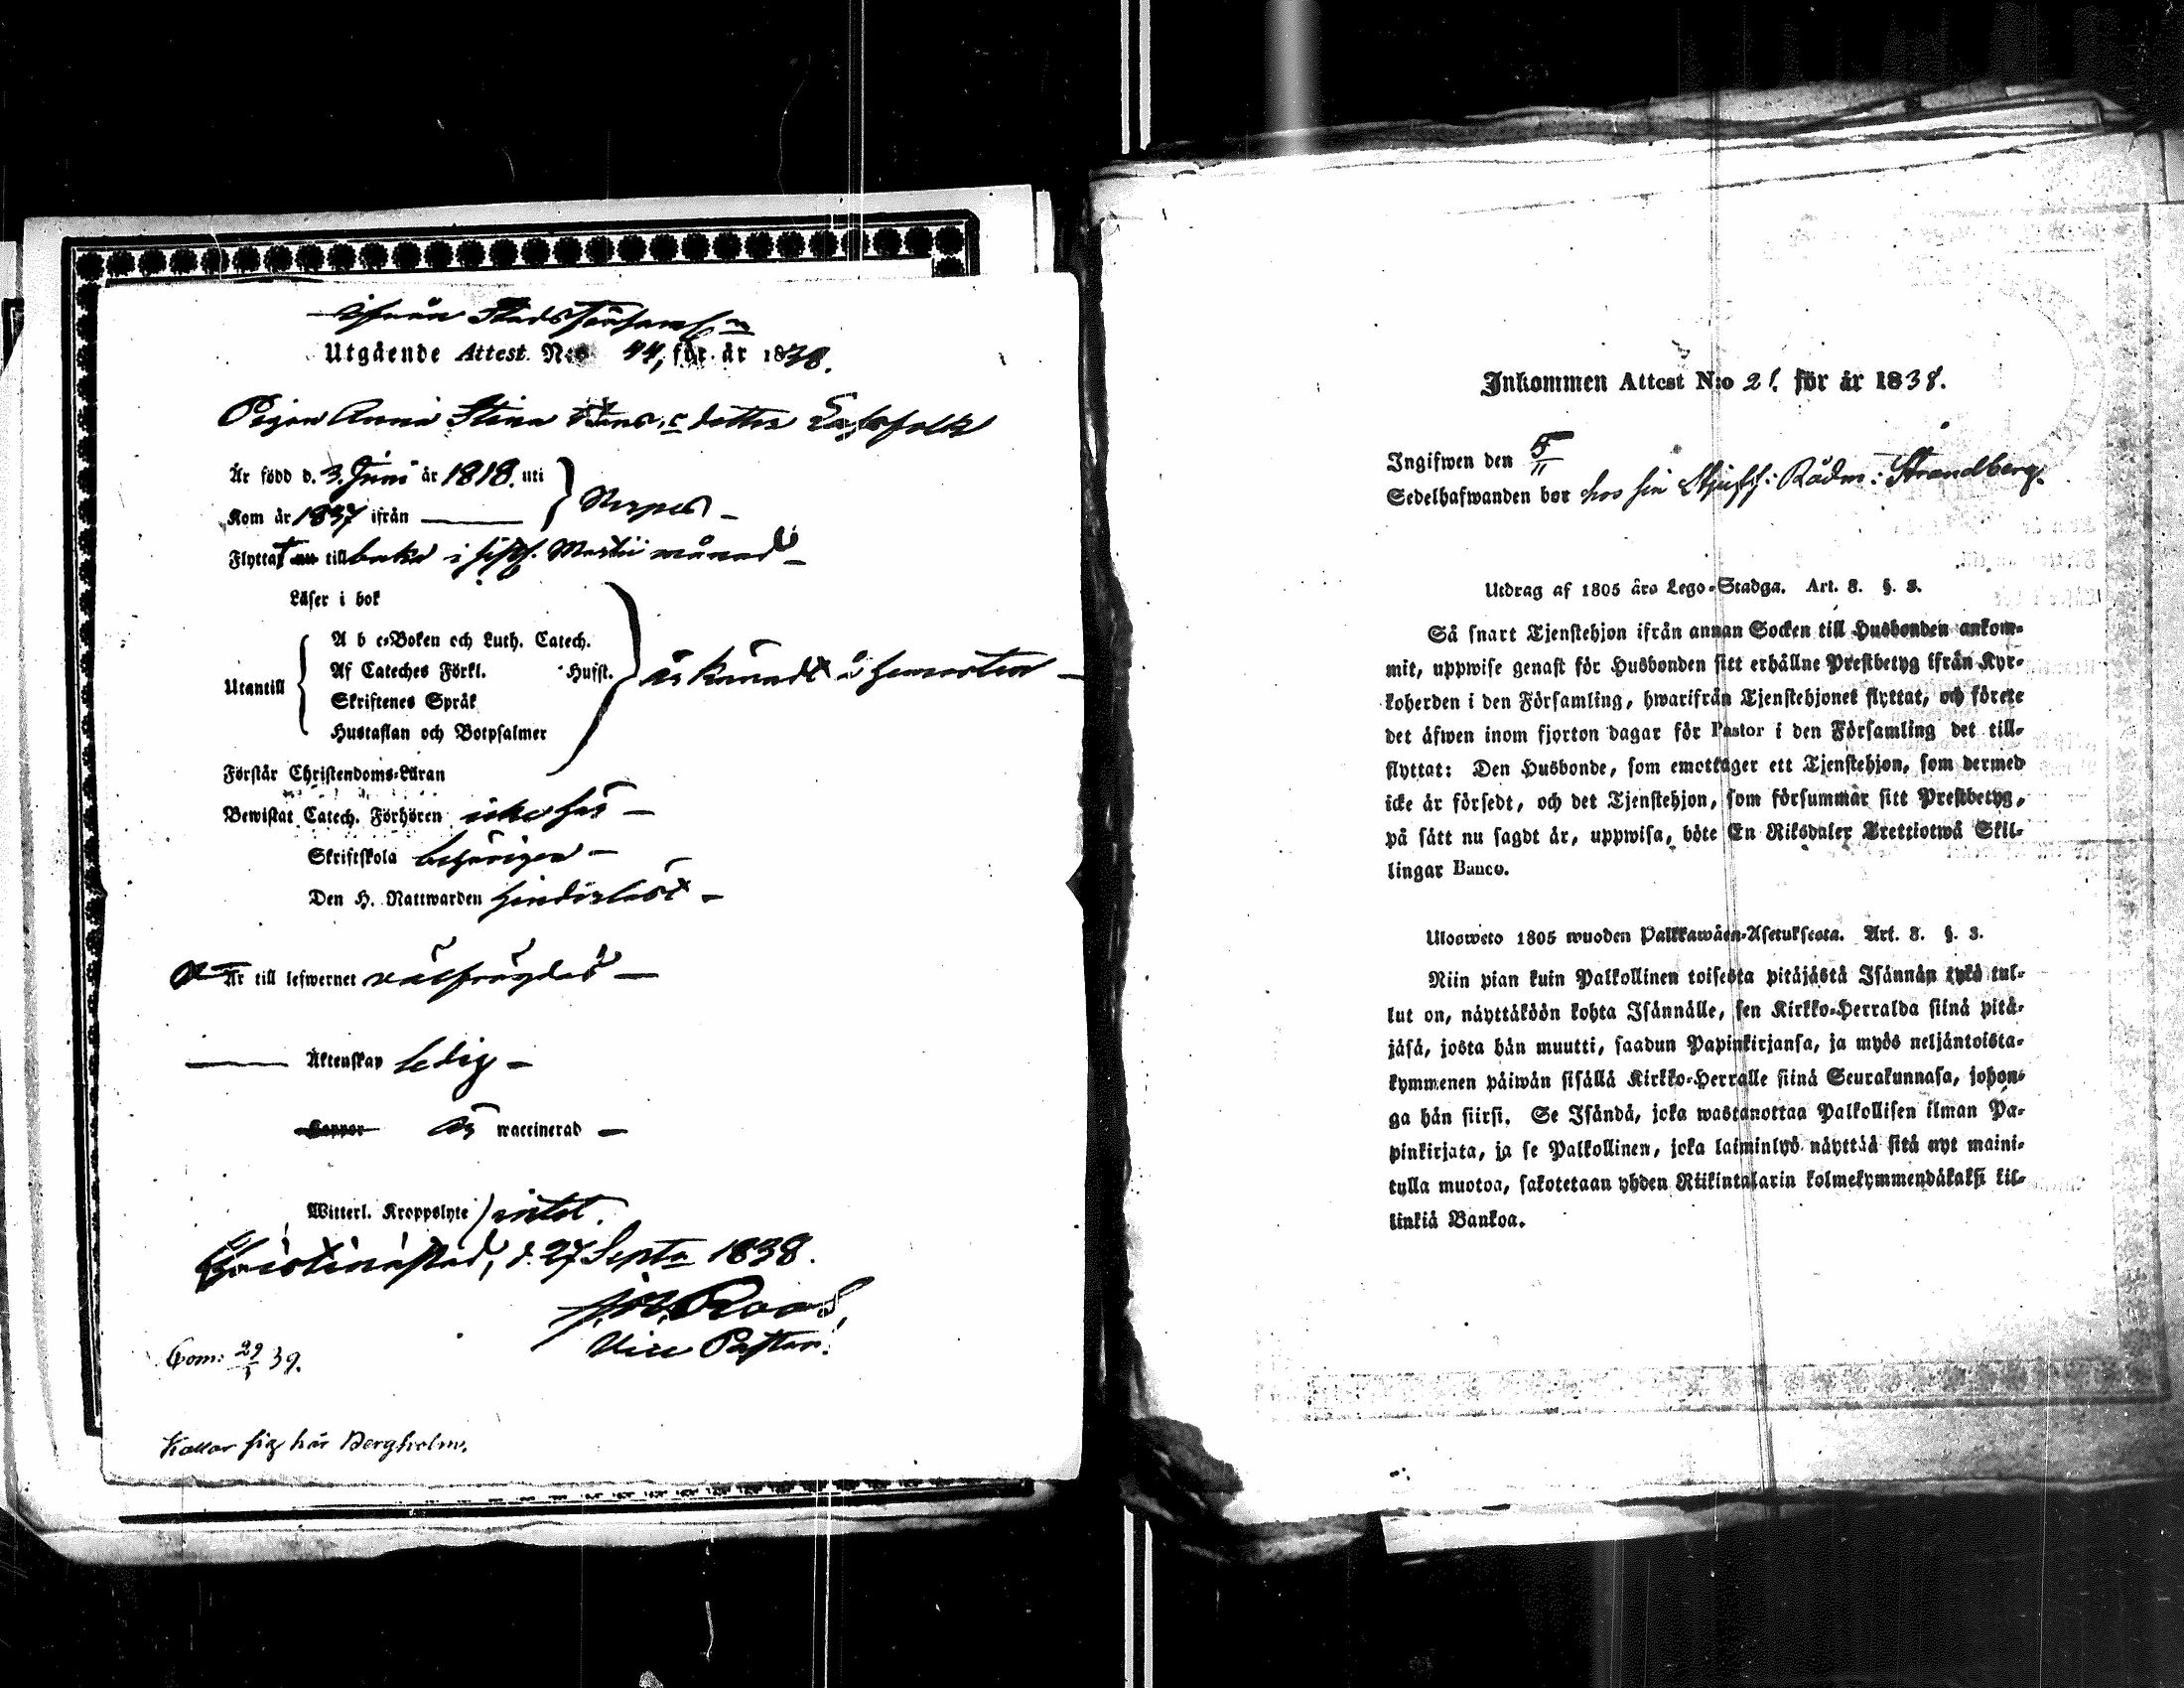 ifrån Stadsförsaml:n
Utgående Attest N:o 44, för år 1838.
Pigan Anna Stina dotter
Är född d. 3. Juni år 1818. uti
Kom år 1837 ifrån — Nerpes —
Flyttat till baka i sistl. Martii månad —
Läser i bok
A b c-Boken och Luth. Catech.
Utantill Af Cateches Förkl. Husst. är känndt i hemorten —
Skriftenes Språk
Hustaflan och Botpsalmer
Förstår Christendoms-Läran
Bewistat Catech. Förhören icke här —
Skriftskola behörigen —
Den H. Nattwarden hinderlöst —
Är till lefwernet välfrägdad —
— Äktenskap ledig —
Koppor är waccinerad —
Witterl. Kroppslyte intet.
Christinæstad, d. 27 Septr 1838.
Roos,
Vice Pastor.
Com: 29 39.
Kallar sig här Bergholm.
Inkommen Attest N:o 21. för år 1838.
Ingifwen den 5/11
Sedelhafwanden bor hos sin Rådm: Strandberg.
Utdrag af 1805 års Lego-Stadga. Art. 8. §. 3.
Så snart Tjenstehjon ifrån annan Socken till Husbonden ankom-
mit, uppwise genast för Husbonden sitt erhållne Prestbetyg ifrån Kyr-
koherden i den Församling, hwarifrån Tjenstehjonet flyttat, och förete
det äfwen inom fjorton dagar för Pastor i den Församling det till-
flyttat: Den Husbonde, som emottager ett Tjenstehjon, som dermed
icke är försedt, och det Tjenstehjon, som försummar sitt Prestbetyg,
på sätt nu sagdt är, uppwisa, böte En Riksdaler Trettiotwå Skil-
lingar Banco.
Ulosweto 1805 wuoden Palkkawäen-Asetuksesta. Art. 8. §. 3.
Niin pian kuin Palkollinen toisesta pitäjästä Isännän tykö tul-
lut on, näyttäköön kohta Isännälle, sen Kirkko-Herralda siinä pitä-
jäsä, josta hän muutti, saadun Papinkirjansa, ja myös neljäntoista-
kymmenen päiwän sisällä Kirkko-Herralle siinä Seurakunnasa, johon-
ga hän siirsi. Se Isändä, joka wastanottaa Palkollisen ilman Pa-
pinkirjata, ja se Palkollinen, joka laiminlyö näyttää sitä nyt maini-
tulla muotoa, sakotetaan yhden Riikintalarin kolmekymmendäkaksi kil-
linkiä Bankoa.